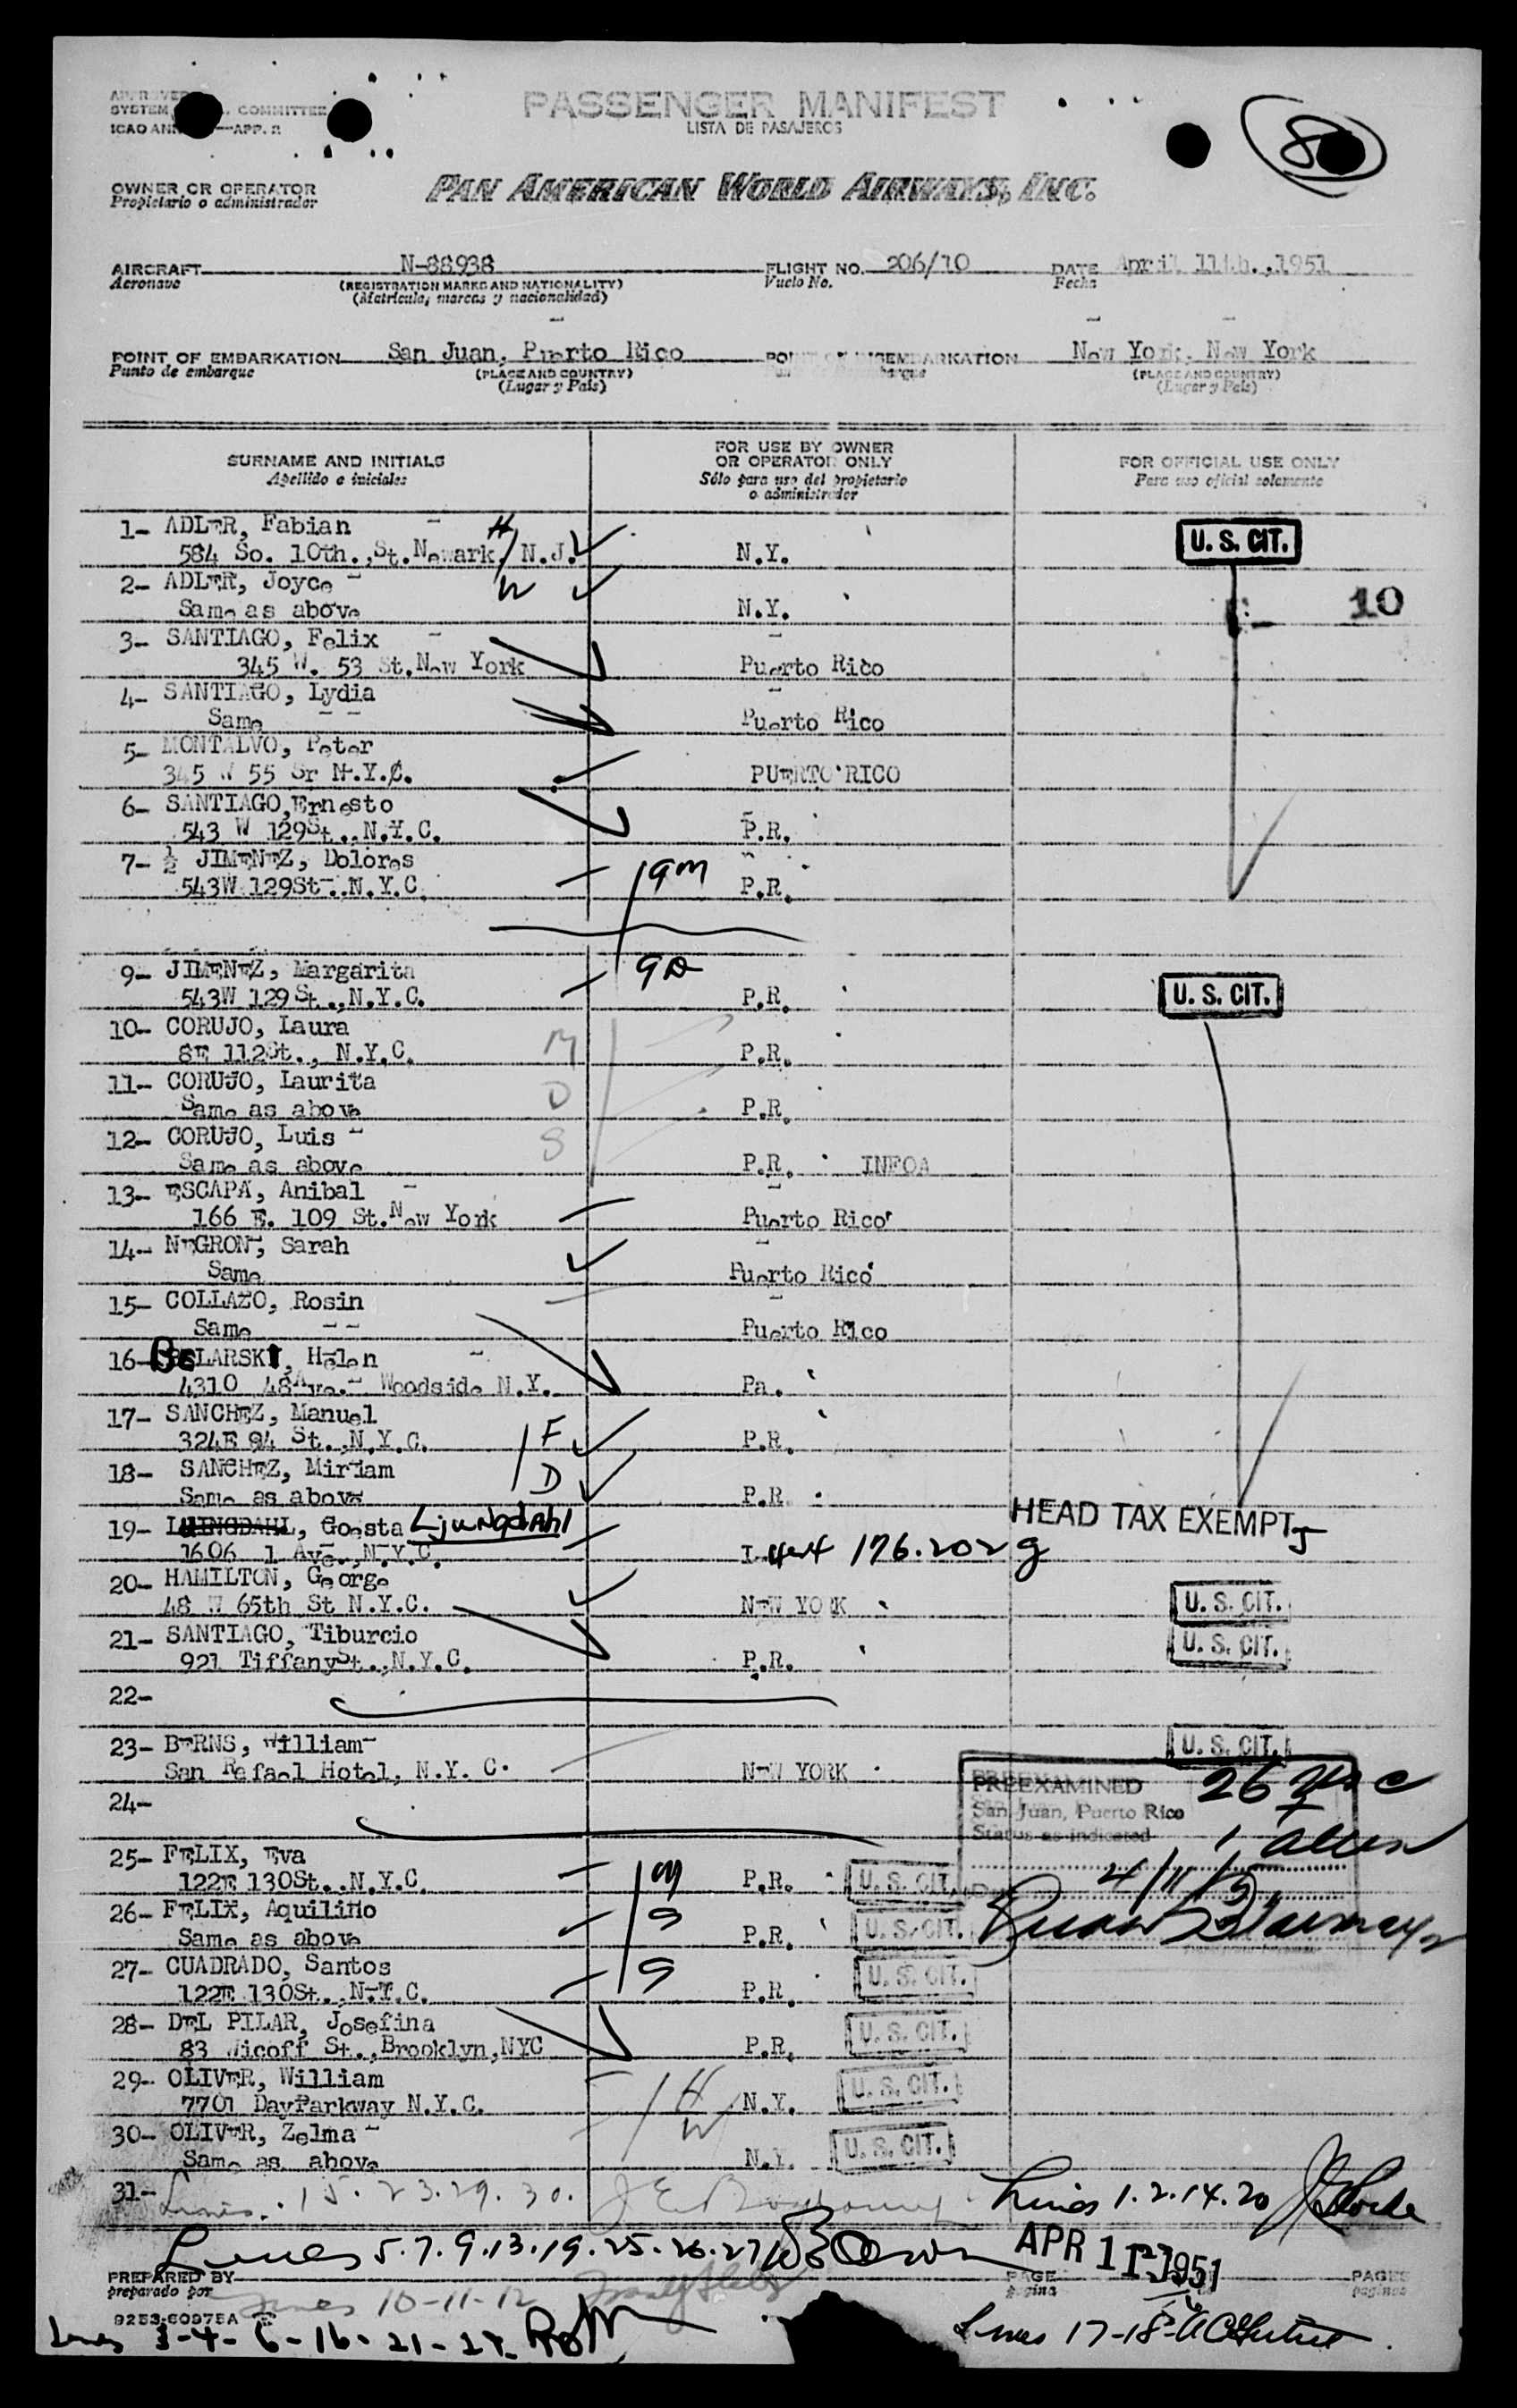 APPROVED
SYSTEM COMMITTEE
ICAO APP. 2
PASSENGER MANIFEST
LISTA DE PASAJEROS
8
OWNER OR OPERATOR
Propietario o administrador
PAN AMERICAN WORLD AIRWAYS, INC.
AIRCRAFT N-88938 FLIGHT NO. 206/10 DATE April 11th.,1951
Aeronave (REGISTRATION MARKS AND NATIONALITY) Vuelo No. Fecha
(Matrícula, marcas y nacionalidad)
POINT OF EMBARKATION San Juan, Puerto Rico POINT OF DISEMBARKATION New York, New York
Punto de embarque (PLACE AND COUNTRY) (PLACE AND COUNTRY)
(Lugar y País) (Lugar y País)
SURNAME AND INITIALS FOR USE BY OWNER OR OPERATOR ONLY FOR OFFICIAL USE ONLY
Apellido e iniciales Sólo para uso del propietario o administrador Para uso oficial solamente
1- ADLER, Fabian H U. S. CIT.
584 So. 10th.,St.Newark/N.J. N.Y.
2- ADLER, Joyce W
Same as above N.Y. 10
3- SANTIAGO, Felix
345 W. 53 St.New York Puerto Rico
4- SANTIAGO, Lydia
Same Puerto Rico
5- MONTALVO, Peter
345 W 55 Sr N.Y.C. PUERTO RICO
6- SANTIAGO,Ernesto
543 W 129St.,N.Y.C. P.R.
7- ½ JIMENEZ, Dolores
543W 129St.,N.Y.C. gm P.R.
9- JIMENEZ, Margarita gD
543W 129St.,N.Y.C. P.R. U. S. CIT.
10- CORUJO, Laura
8E 112St., N.Y.C. M P.R.
11- CORUJO, Laurita
Same as above D P.R.
12- CORUJO, Luis
Same as above S P.R. INFOA
13- ESCAPA, Anibal
166 E. 109 St.New York Puerto Rico
14- NEGRON, Sarah
Same Puerto Rico
15- COLLAZO, Rosin
Same Puerto Rico
16- BELARSKI, Helen
4310 48Ave. Woodside N.Y. Pa.
17- SANCHEZ, Manuel
324E 94 St.,N.Y.C. F P.R.
18- SANCHEZ, Miriam
Same as above D P.R.
19- Goesta Ljungdahl HEAD TAX EXEMPT
1606 1 Ave.,N.Y.C. 176.202 g
20- HAMILTON, George
48 W 65th St N.Y.C. NEW YORK U. S. CIT.
21- SANTIAGO, Tiburcio U. S. CIT.
921 TiffanySt.,N.Y.C. P.R.
22-
23- BERNS, William U. S. CIT.
San Rafael Hotel, N.Y. C. NEW YORK
24-
PREEXAMINED 26 USC
San Juan, Puerto Rico
Status as indicated 1 alien
4/11/51
25- FELIX, Eva
122E 130St.,N.Y.C. M P.R. U. S. CIT.
26- FELIX, Aquilino S
Same as above P.R. U. S. CIT.
27- CUADRADO, Santos S
122E 130St.,N.Y.C. P.R. U. S. CIT.
28- DEL PILAR, Josefina
83 Wicoff St.,Brooklyn,NYC P.R. U. S. CIT.
29- OLIVER, William
7701 DayParkway N.Y.C. H N.Y. U. S. CIT.
30- OLIVER, Zelma W
Same as above N.Y. U. S. CIT.
31- Lines. 15-23.29.30. Lines 1.2.14.20
Lines 5.7.9.13.19.25.26.27 APR 11 1951
PREPARED BY PAGE PAGES
preparado por página páginas
Lines 10-11-12
9253-60975A
Lines 3-4-6-16-21-28 Lines 17-18-